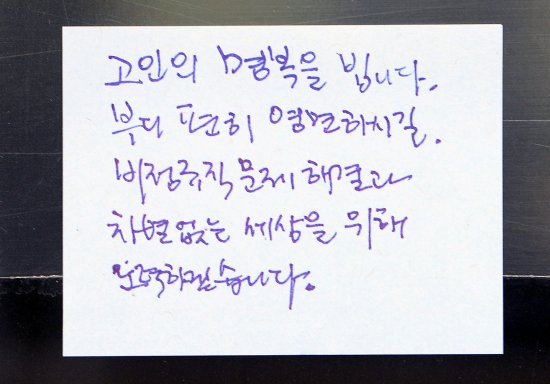 고인의 명복을 빕니다.
부디 편히 영면하시길.
비정규직 문제 해결과
차별없는 세상을 위해
노력하겠습니다.